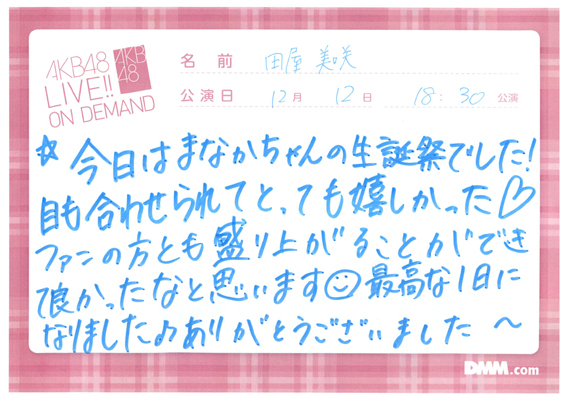 AKB48
LIVE!!
ON DEMAND
AKB
48
名前 田屋 美咲
公演日 12月 12日 18:30 公演
☆今日はまなかちゃんの生誕祭でした!
目も合わせられてとっても嬉しかった♡
ファンの方とも盛り上がることができ
良かったなと思います☺最高な1日に
なりました♪ありがとうございました〜
DMM.com